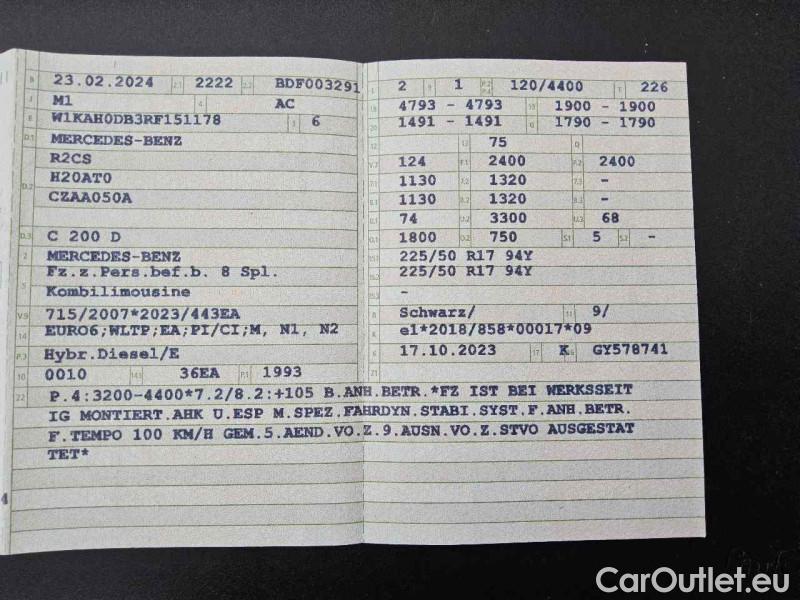 B 23.02.2024 2.1 2222 2.2 BDF003291
J M1 4 AC
E W1KAH0DB3RF151178 3 6
D.1 MERCEDES-BENZ
R2CS
D.2 H20AT0
CZAA050A
D.3 C 200 D
2 MERCEDES-BENZ
Fz.z.Pers.bef.b. 8 Spl.
5 Kombilimousine
V.9 715/2007*2023/443EA
14 EURO6;WLTP;EA;PI/CI;M, N1, N2
P.3 Hybr.Diesel/E
10 0010 14.1 36EA P.1 1993
22 P.4:3200-4400*7.2/8.2:+105 B.ANH.BETR.*FZ IST BEI WERKSSEIT
IG MONTIERT.AHK U.ESP M.SPEZ.FAHRDYN.STABI.SYST.F.ANH.BETR.
F.TEMPO 100 KM/H GEM.5.AEND.VO.Z.9.AUSN.VO.Z.STVO AUSGESTAT
TET*
L 2 9 1 P.2 P.4 120/4400 T 226
18 4793 - 4793 19 1900 - 1900
20 1491 - 1491 G 1790 - 1790
12 13 75 Q
V.7 124 F.1 2400 F.2 2400
7.1 1130 7.2 1320 7.3 -
8.1 1130 8.2 1320 8.3 -
U.1 74 U.2 3300 U.3 68
O.1 1800 O.2 750 S.1 5 S.2 -
15.1 225/50 R17 94Y
15.2 225/50 R17 94Y
15.3 -
R Schwarz/ 11 9/
K e1*2018/858*00017*09
6 17.10.2023 17 K 16 GY578741
21
4
CarOutlet.eu